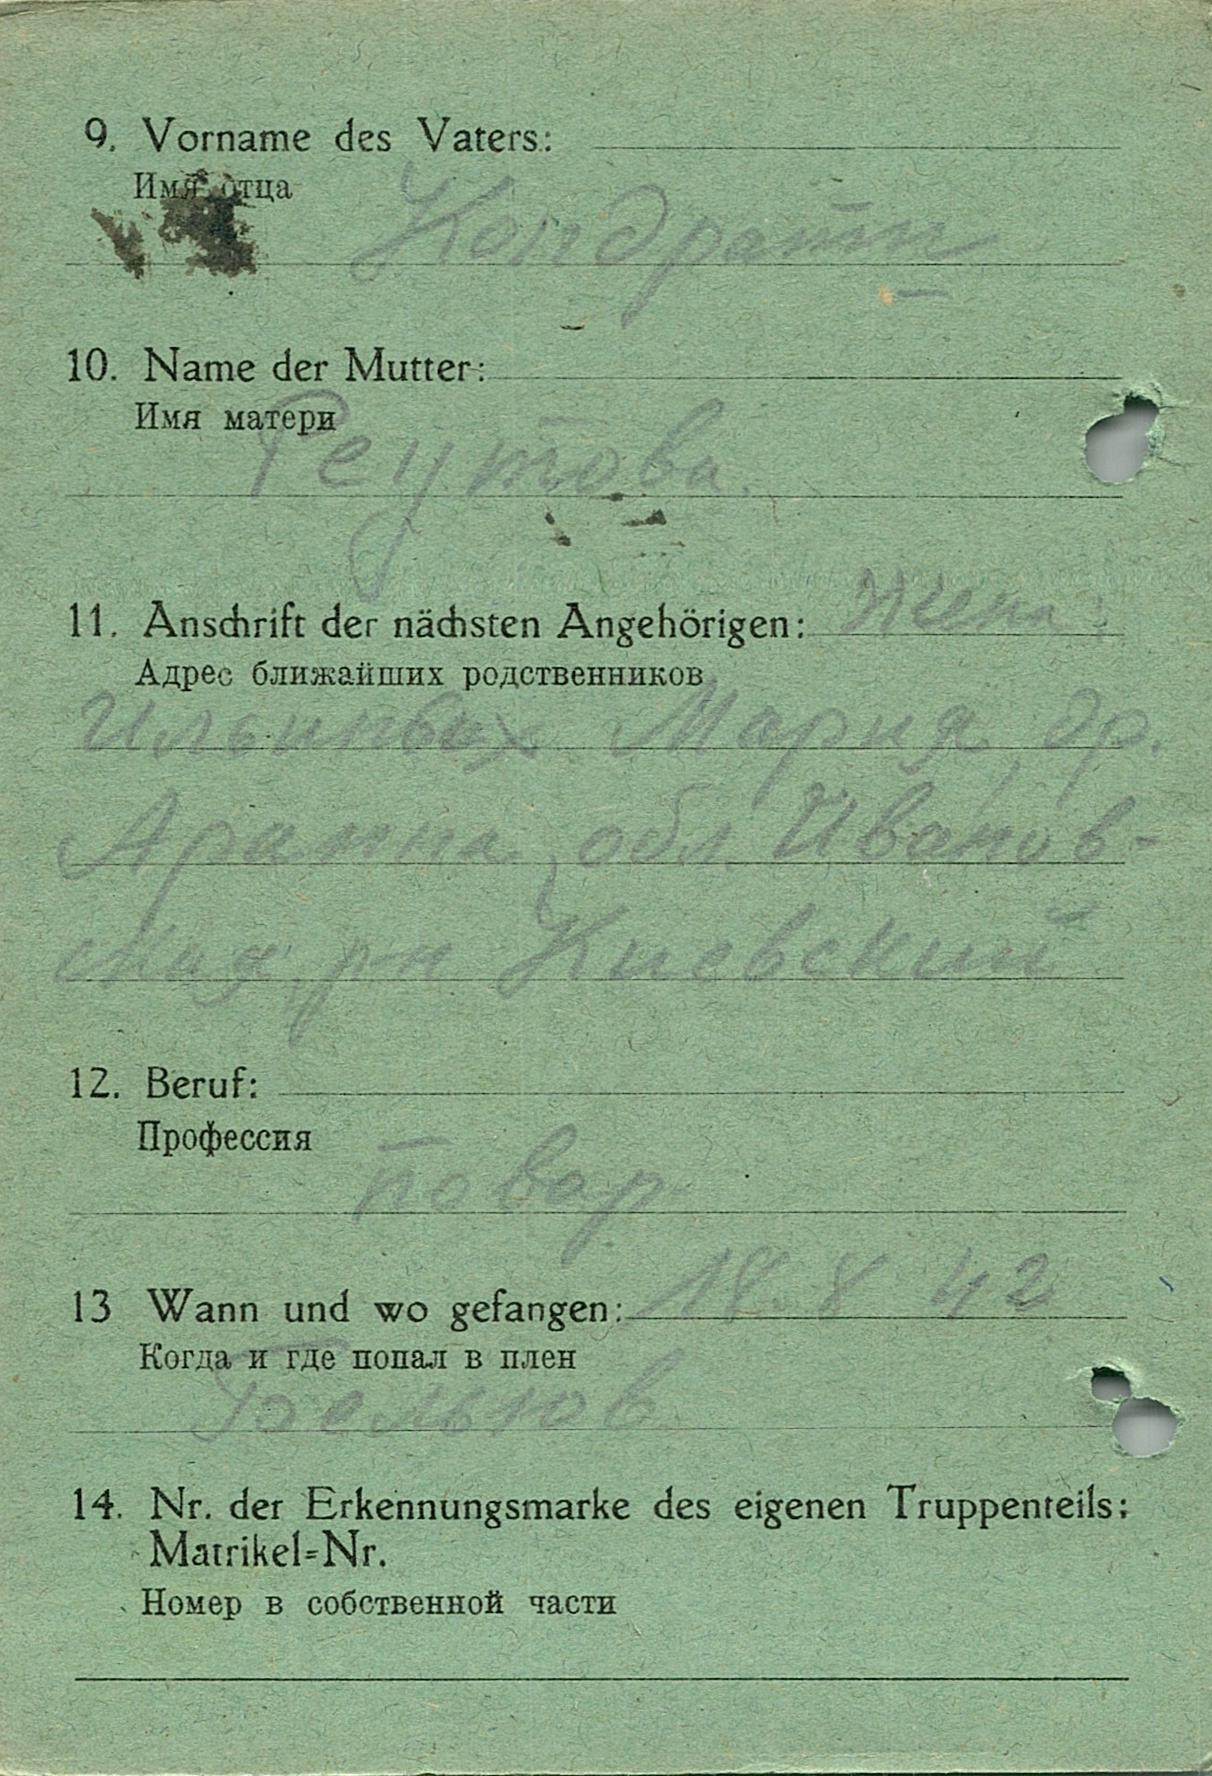 9. Vorname des Vaters:
Имя отца
Кондрат
10. Name der Mutter:
Имя матери
Реутова.
11. Anschrift der nächsten Angehörigen: Жена:
Адрес ближайших родственников
Ильиных Мария, др.
обл. Иванов-
ская, р-н Киевский
12. Beruf:
Профессия
повар
13 Wann und wo gefangen: 18. 8 42
Когда и где попал в плен
14. Nr. der Erkennungsmarke des eigenen Truppenteils:
Matrikel-Nr.
Номер в собственной части